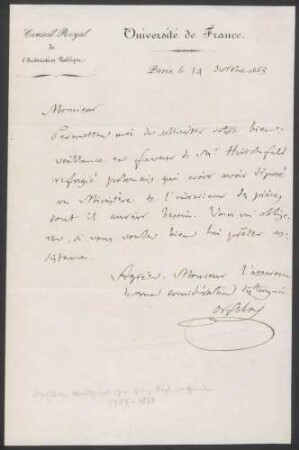 Conseil Royal
de
l'Instruction Publique.
Université de France.
Paris, le 14 octobre
Monsieur
Permettez moi de solliciter votre bien-
veillance en faveur de Mr Hirschfeld
refugié polonais qui croit avoir déposé
au Ministère de l'intérieur des pièces
dont il aurait besoin. Vous m'oblige-
rez, si vous voulez bien lui prêter as-
sistance.
Agréez, Monsieur l'assurance
de ma considération distinguée
Orfila